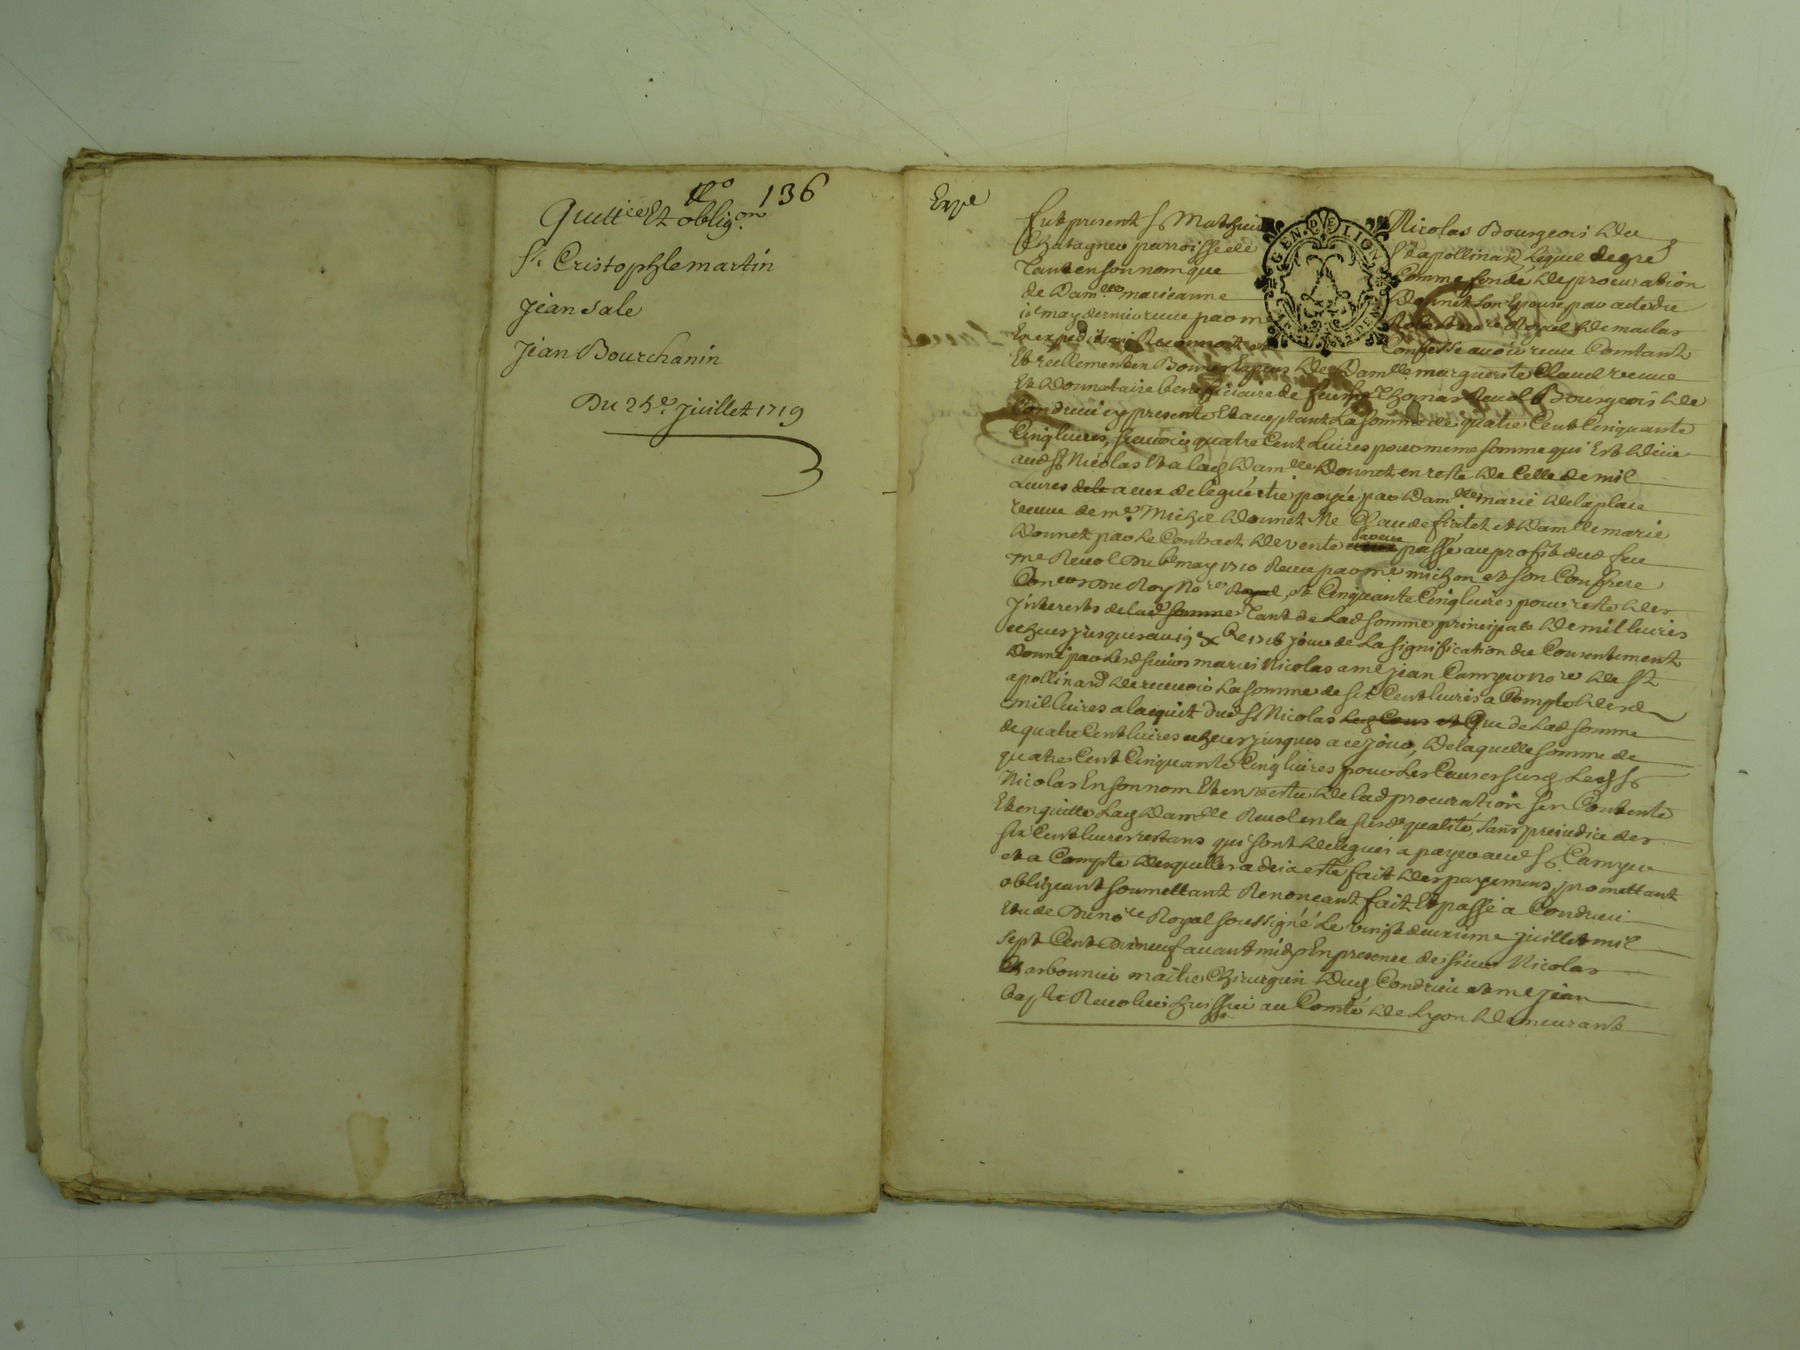 N° 136
Quittce Et oblig.on
Sr Cristophle martin
Jean Sale
Jean Bourchanin
Du 25e. Juillet 1719
Expé
fut present Sr Mathieu Nicolas Bourgeois de
Chatagner parroisse de St apollinard Lequel de gré
Tant en son nom que Comme fondé de procuration
de Damlle marieanne Donnet son Epouse par acte du
may dernier receue par me notre Royal de maclas
En expedition Reconnoit et Confesse avoir receu Comtant
Et reellement en Bonnes Especes de Damlle marguerite Claud veuve
Et Donnataire beneficiaire de feu Thomas Revol Bourgeois de
Condrieu cy presente Et acceptant La somme de quatre Cent Cinquante
Cinq livres, scavoir quatre Cent Livres pour meme somme qui Est deue
aud Sr Nicolas Et a lad Damlle Donnet en reste de Celle de mil
Livres a eux deleguée payée par Damlle marie delaplace
veuve de me Michel Donnet Me Claude fiatet et Damlle marie
Donnet par le Contract de vente passé au profit dud feu
me Revol Du may 1710 Receu par me michon et son Confrere
Coners Du Roy Nores Royal, et Cinquante Cinq livres pour reste des
Jnterests de lad somme Tant de Lad somme principale de mil livres
echeus jusques au 19 1716 jour de La signification du Consentement
Donné par Lesd sieurs mariés Nicolas a me jean Camyer nore de St
apollinard de recevoir La somme de six Cent livres a Compte desd
mil livres a lacquit dud Sr Nicolas Que de Lad somme
de quatre Cent livres echeus jusques a ce jour, De laquelle somme de
quatre Cent Cinquante Cinq livres pour Les Causes susd Led Sr
Nicolas En son nom Et en vertu de lad procuration sen Contente
Et en quitte Lad Damlle Revol en la susde qualité, sans prejudice des
six Cent livres restans qui sont delegués a payer aud Sr Camyer
et a Compte desquelles a deja esté fait des payemens, promettant
obligeant soumettant Renonceant fait Et passé a Condrieu
Etude Du nore Royal soussigné Le vingt deuxieme juillet mil
sept Cent Dixneuf avant midy En presence de sieur Nicolas
Charbonnier maitre Chirurgien dud Condrieu et me jean
bapte Revolier huissier au Comté de Lyon demeurant